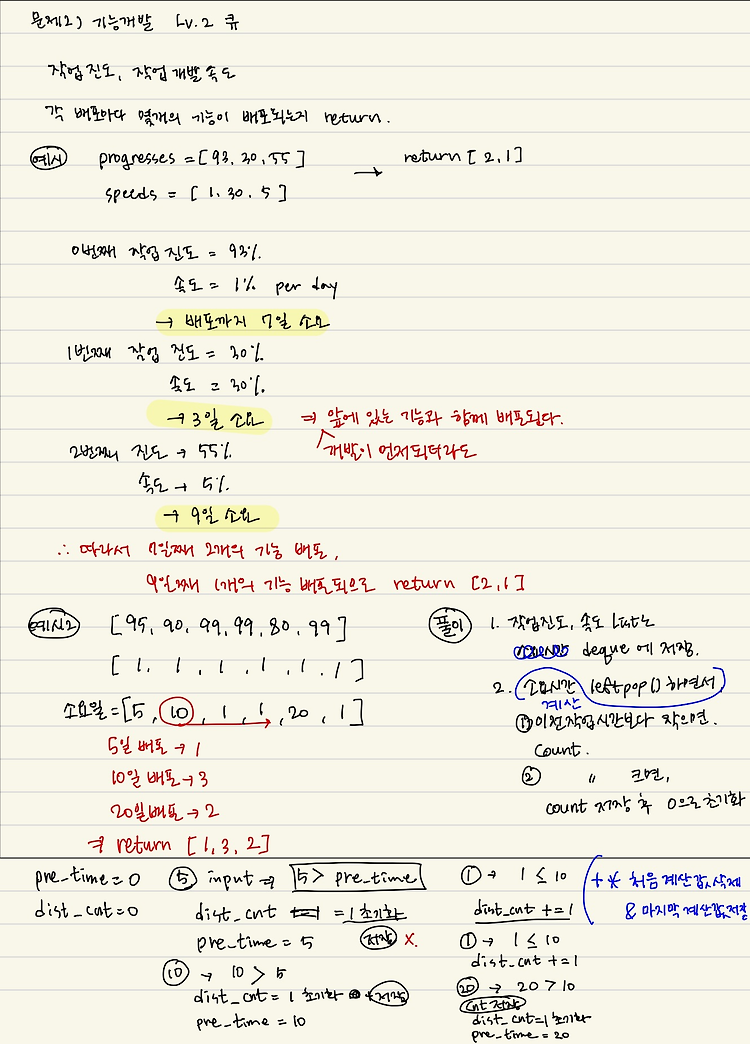 문제2) 기능개발 Lv.2 큐
작업 진도, 작업 개발 속도
각 배포마다 몇개의 기능이 배포되는지 return.
예시 progresses = [93, 30, 55] → return [2,1]
speeds = [1, 30, 5]
0번째 작업 진도 = 93%.
속도 = 1% per day
→ 배포까지 7일 소요
1번째 작업 진도 = 30%.
속도 = 30%.
→ 3일 소요 ⇒ 앞에 있는 기능과 함께 배포된다.
개발이 먼저되더라도
2번째 진도 → 55%.
속도 → 5%.
→ 9일 소요
∴ 따라서 7일째 2개의 기능 배포,
9일째 1개의 기능 배포되므로 return [2,1]
예시2 [95, 90, 99, 99, 80, 99]
[1, 1, 1, 1, 1, 1]
소요일 = [5, 10, 1, 1, 20, 1]
5일 배포 → 1
10일 배포 → 3
20일 배포 → 2
⇒ return [1, 3, 2]
풀이 1. 작업진도, 속도 list는
deque에 저장.
2. 소요시간 leftpop() 하면서
계산
① 이전작업시간보다 작으면,
count.
② 〃 크면,
count 저장 후 0으로 초기화
pre_time = 0
dist_cnt = 0
⑤ input ⇒ 5 > pre_time
dist_cnt = 1 초기화
pre_time = 5 저장 X.
⑩ → 10 > 5
dist_cnt = 1 초기화 저장
pre_time = 10
① → 1 ≤ 10
dist_cnt += 1
① → 1 ≤ 10
dist_cnt += 1
⑳ → 20 > 10
cnt 저장
dist_cnt = 1 초기화
pre_time = 20
+ * 처음 계산값 삭제
& 마지막 계산값 저장